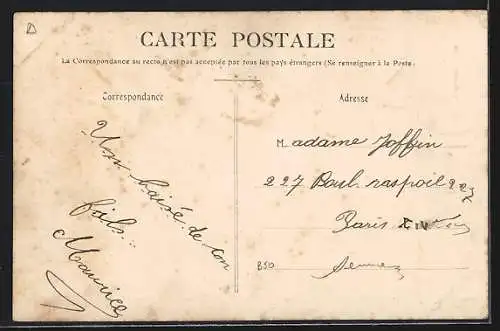 D
CARTE POSTALE
La Correspondance au recto n'est pas acceptée par tous les pays étrangers (Se renseigner à la Poste.
Correspondance
Adresse
Un baisé de ton
fils...
Maurice
Madame Joffrin
227 Boul. raspoil 227
Paris XIV
B50